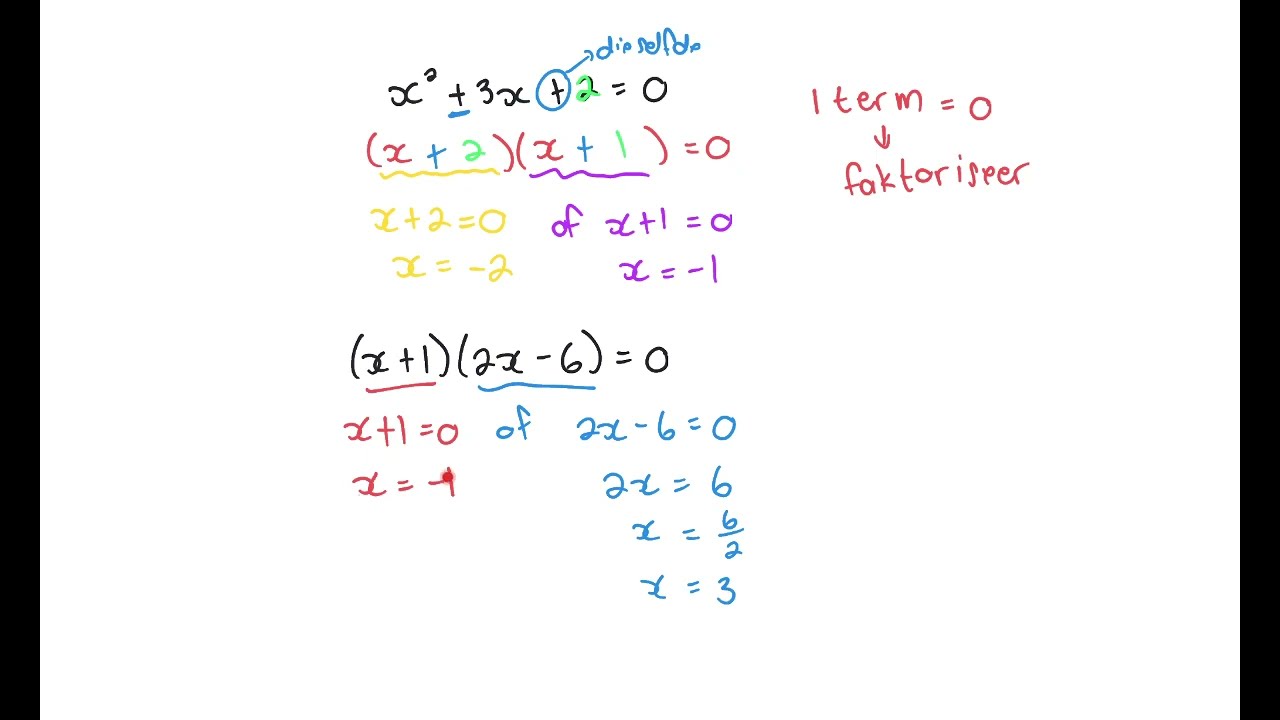 dieselfde
x² + 3x + 2 = 0
1 term = 0
(x + 2)(x + 1) = 0
faktoriseer
x+2=0 of x+1=0
x = -2 x = -1
(x+1)(2x-6)=0
x+1=0 of 2x-6=0
x = -1 2x = 6
x = 6/2
x = 3